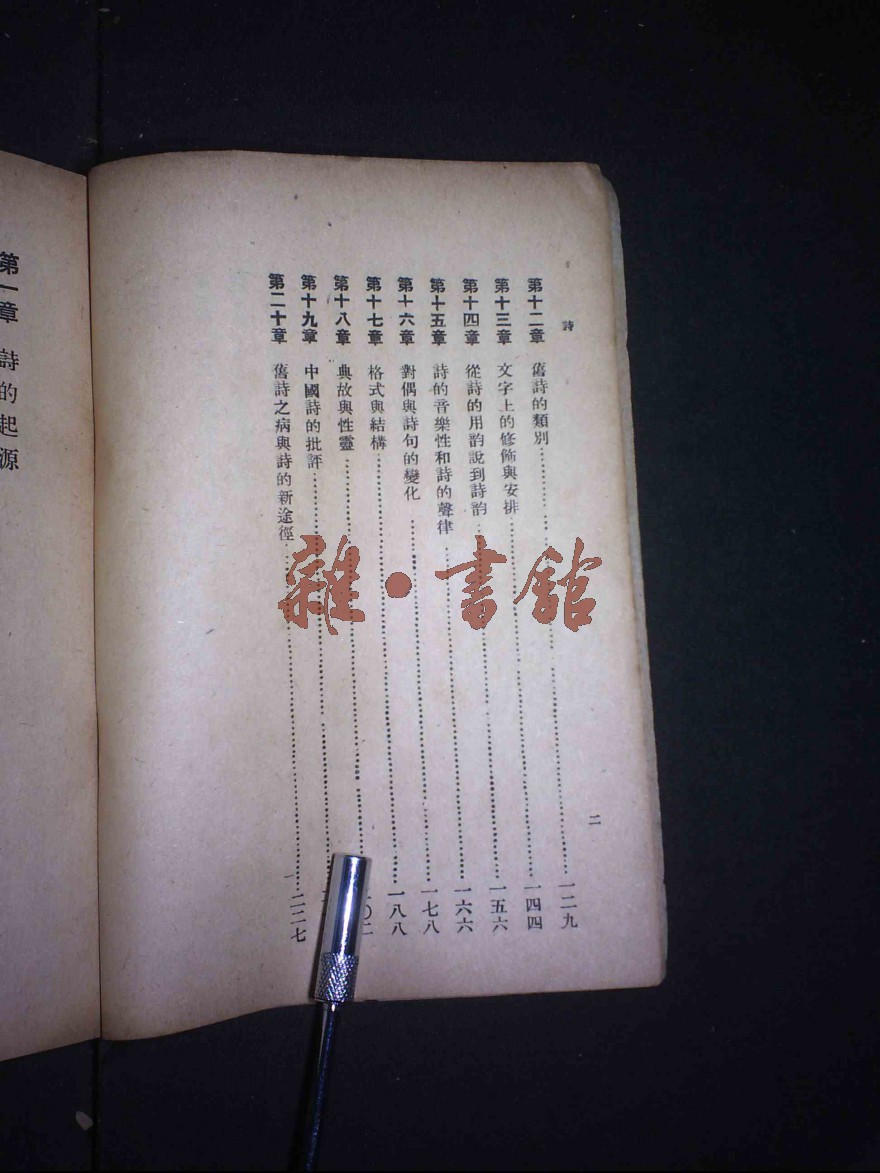 詩
二
第十二章 舊詩的類別……一二九
第十三章 文字上的修飾與安排……一四四
第十四章 從詩的用韵說到詩韵……一五六
第十五章 詩的音樂性和詩的聲律……一六六
第十六章 對偶與詩句的變化……一七八
第十七章 格式與結構……一八八
第十八章 典故與性靈……〇二
第十九章 中國詩的批評……
第二十章 舊詩之病與詩的新途徑……二二七
第一章 詩的起源
雜·書館